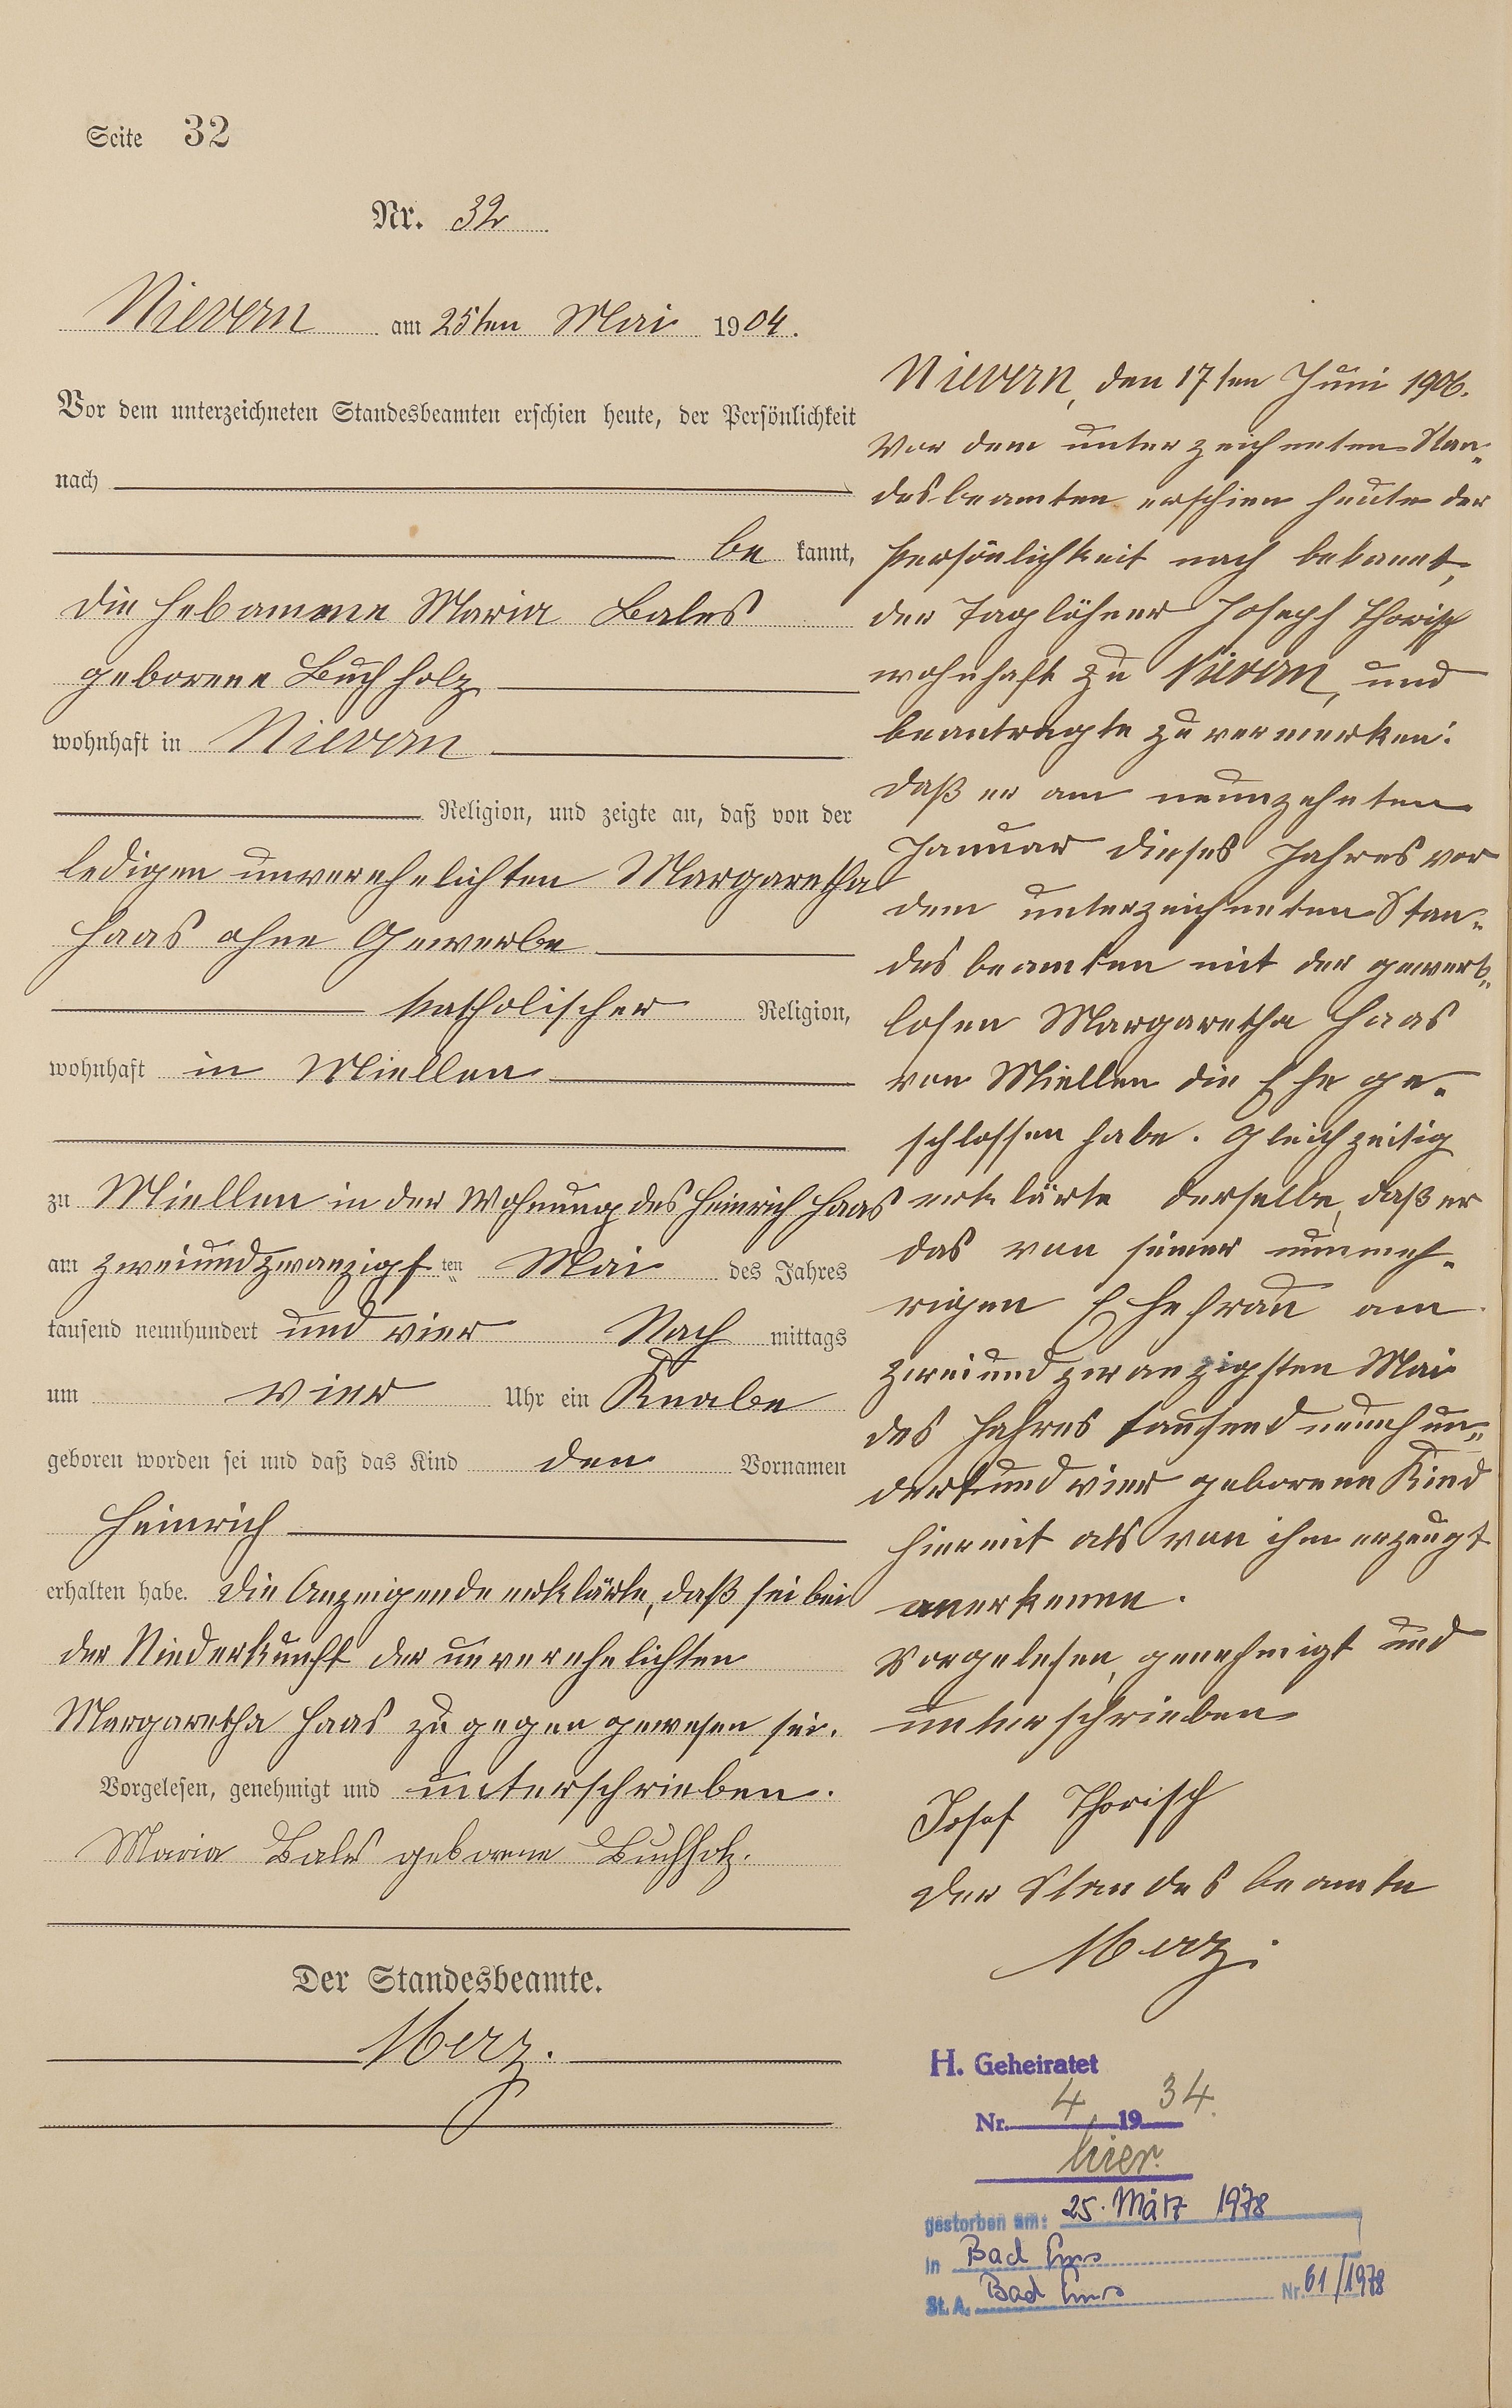 Seite 32
Nr. 32
Nievern am 25ten Mai 1904.
Vor dem unterzeichneten Standesbeamten erschien heute, der Persönlichkeit
nach
be kannt,
die Hebamme Maria Bales
geborene Buchholz
wohnhaft in Nievern
Religion, und zeigte an, daß von der
ledigen unverehelichten Margaretha
Haas ohne Gewerbe
katholischer Religion,
wohnhaft in Miellen
zu Miellen in der Wohnung des Heinrich Haas
am zweiundzwanzigs ten Mai des Jahres
tausend neunhundert und vier Nach mittags
um vier Uhr ein Knabe
geboren worden sei und daß das Kind den Vornamen
Heinrich
erhalten habe. Die Anzeigende erklärte, daß sei bei
der Niederkunft der unverehelichten
Margaretha Haas zugegen gewesen sei.
Vorgelesen, genehmigt und unterschrieben.
Maria Bales geborene Buchholz.
Der Standesbeamte.
Merz.
Nievern, den 17ten Juni 1906.
Vor dem unterzeichneten Stan-
desbeamten erschien heute der
Persönlichkeit nach bekannt,
der Taglöhner Joseph Thorisch
wohnhaft zu Nievern, und
beantragte zu vermerken:
daß er am neunzehnten
Januar dieses Jahres vor
dem unterzeichneten Stan-
desbeamten mit der gewerb-
losen Margaretha Haas
von Miellen die Ehe ge-
schlossen habe. Gleichzeitig
erklärte derselbe, daß er
das von seiner nunmeh-
rigen Ehefrau am
zweiundzwanzigsten Mai
des Jahres tausend neunhun-
dert und vier geborene Kind
hiermit als von ihm erzeugt
anerkenne.
Vorgelesen, genehmigt und
unterschrieben
Josef Thorisch
Der Standesbeamte
Merz.
H. Geheiratet
Nr. 4, 19 34.
hier.
gestorben am: 25. März 1978
in Bad Ems
St. A. Bad Ems Nr. 61/1978